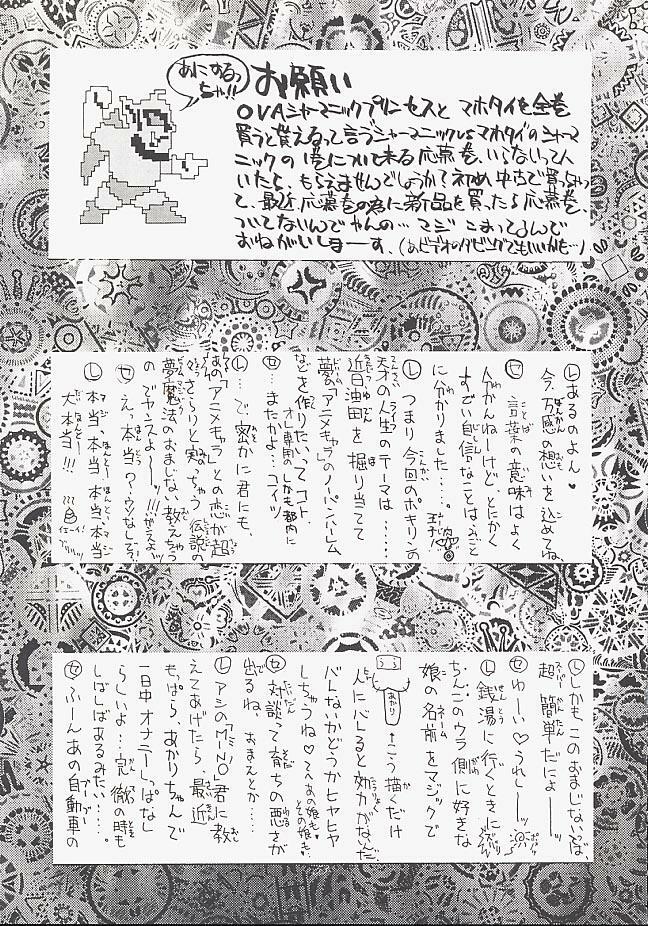 あにするっ
ちゃ!!
お願い
OVAシャーマニックプリンセスと マホタイを全巻
買うと貰えるって言うシャーマニックVSマホタイのシャーマ
ニックの1巻について来る応募巻、いらないって人
いたら、もらえませんでしょうか?初め中古で買っちゃっ
て、最近応募巻の為に新品を買ったら応募巻、
ついてないんでやんの… マジ こまってるんで
おねがいしまーす。(あとビデオのダビングでもいいかも…)
Ⓛ あるのよん♥
今、万感の想いを込めてね
Ⓢ 言葉の意味はよく
分かんねーけど、とにかく
すごい自信なことはみごと
に分かりました……。
Ⓛ つまり今回のポキリンの
天才の人生のテーマは……
近日油田を掘り当てて
夢の「アニメキャラ」のノーパンハーレム
などを作りたいってコト、
オレ専用のしかも都内に
Ⓢ …またかよ…コイツ
Ⓛ …で、密かに君にも、
あの「アニメキャラ」との恋が超
あっさりと実っちゃう伝説の
夢魔法のおまじない教えちゃう
のでヤンスよーーッ!!!
Ⓢ えっ本当?ウソなしろ?
Ⓛ 本当、本当、本当、本当
大本当!!!
Ⓛ しかもこのおまじないは、
超簡単だによーーッ
Ⓢ わーい♥うれしーーッ
Ⓛ 銭湯に行くときに
ちんこのウラ側に好きな
娘の名前をマジックで
あかり
↑こう描くだけ
人にバレると効力がないんだ
バレないかどうかヒヤヒヤ
しちゃうね♥
Ⓢ 対談って育ちの悪さが
出るね、おまえとか……
Ⓛ アシのMINO君に教
えてあげたら、最近
もっぱら、あかりちゃんで
一日中オナニーしっぱなし
らしいよ…完徹の時も
しばしばあるみたい……。
Ⓢ ふーんあの自動車の